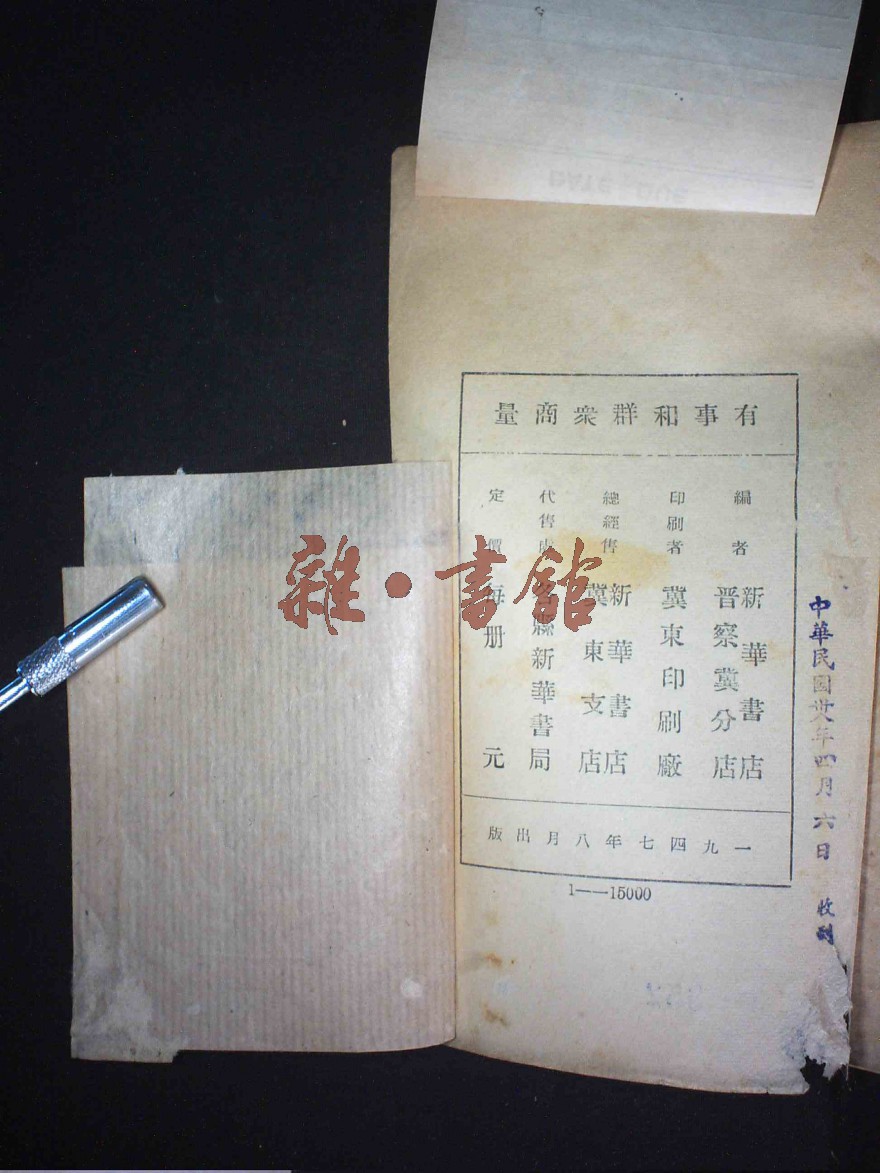 有事和群衆商量
編者
新華書店
晋察冀分店
印刷者
冀東印刷廠
總經售
新華書店
冀東支店
代售處
各縣新華書局
定價
每册 元
一九四七年八月出版
1——15000
中華民國卅八年四月六日 收到
雜·書館
DATE DUE